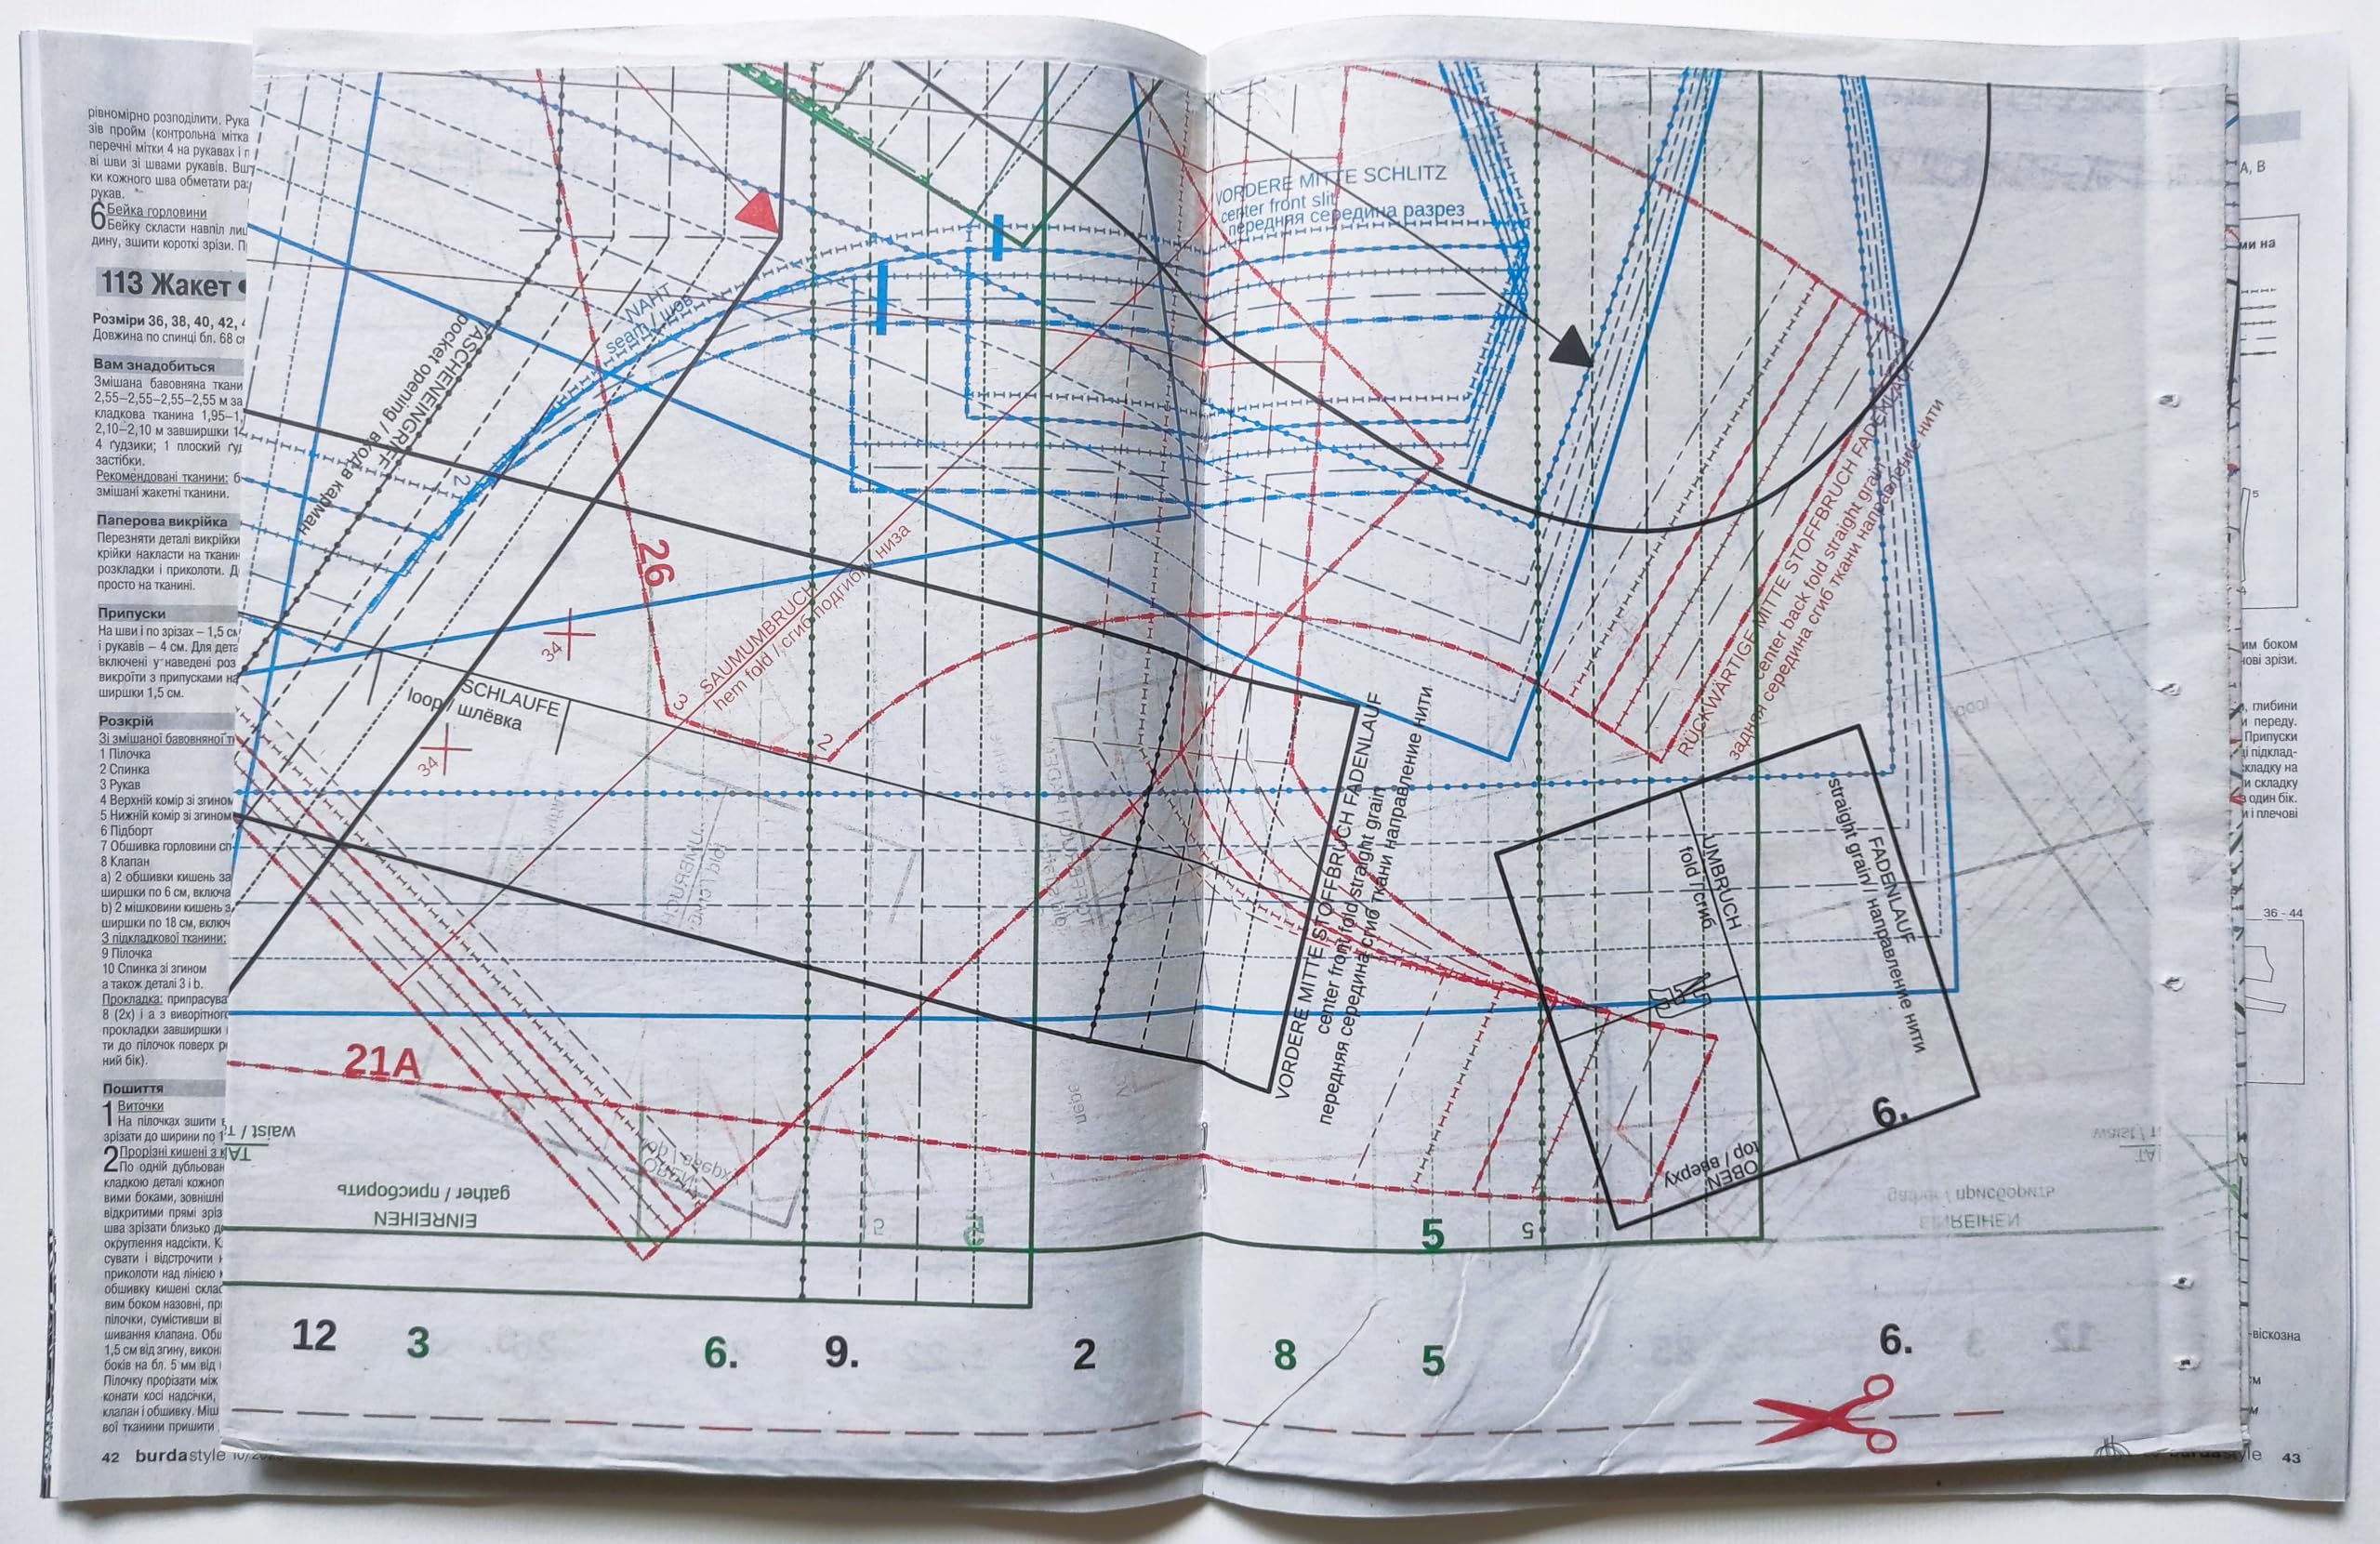 рівномірно розподілити. Рука
зів пройм (контрольна мітка
перечні мітки 4 на рукавах і п
ві шви зі швами рукавів. Вш
ки кожного шва обметати ра
рукав.
6 Бейка горловини
Бейку скласти навпіл ли
дину, зшити короткі зрізи. П
113 Жакет
Розміри 36, 38, 40, 42,
Довжина по спинці бл. 68 с
Вам знадобиться
Змішана бавовняна ткани
2,55–2,55–2,55–2,55 м за
кладкова тканина 1,95–1,
2,10–2,10 м завширшки 14
4 ґудзики; 1 плоский ґуд
застібки.
Рекомендовані тканини: б
змішані жакетні тканини.
Паперова викрійка
Перезняти деталі викрійки
крійки накласти на ткани
розкладки і приколоти. Д
просто на тканині.
Припуски
На шви і по зрізах – 1,5 см
і рукавів – 4 см. Для дета
включені у наведені роз
викроїти з припусками на
ширшки 1,5 см.
Розкрій
Зі змішаної бавовняної т
1 Пілочка
2 Спинка
3 Рукав
4 Верхній комір зі згином
5 Нижній комір зі згином
6 Підборт
7 Обшивка горловини сп
8 Клапан
a) 2 обшивки кишень за
ширшки по 6 см, включа
b) 2 мішковини кишень з
ширшки по 18 см, включ
З підкладкової тканини:
9 Пілочка
10 Спинка зі згином
а також деталі 3 і b.
Прокладка: припрасува
8 (2x) і a з виворітног
прокладки завширшки
ти до пілочок поверх р
ний бік).
Пошиття
1 Виточки
На пілочках зшити в
зрізати до ширини по 1
2 Прорізні кишені з к
По одній дубльован
кладкою деталі кожног
вими боками, зовнішні
відкритими прямі зріз
шва зрізати близько д
округлення надсікти. К
сувати і відстрочити
приколоти над лінією
обшивку кишені склас
вим боком назовні, пр
пілочки, сумістивши ві
шивання клапана. Обш
1,5 см від згину, викон
боків на бл. 5 мм від
Пілочку прорізати між
конати косі надсічки,
клапан і обшивку. Міш
вої тканини пришити
42 burdastyle 10/20
TASCHENEINGRIFF
pocket opening / вход в карман
NAHT
seam / шов
2
VORDERE MITTE SCHLITZ
center front slit
передняя середина разрез
26
34
34
3
2
SAUMUMBRUCH
hem fold / сгиб подгибки низа
SCHLAUFE
loop / шлёвка
RÜCKWÄRTIGE MITTE STOFFBRUCH FADENLAUF
center back fold straight grain
задняя середина сгиб ткани направление нити
VORDERE MITTE STOFFBRUCH FADENLAUF
center front fold straight grain
передняя середина сгиб ткани направление нити
UMBRUCH
fold / сгиб
FADENLAUF
straight grain / направление нити
OBEN
top / вверх
6.
21A
waist / т
TA
EINREIHEN
gather / присборить
5
5
12 3 6. 9. 2 8 5 6.
A, B
ми на
5
им боком
нові зрізи.
, глибини
и переду.
Припуски
і підклад-
складку на
и складку
в один бік.
и і плечові
36 - 44
-віскозна
см
м
burdastyle 43